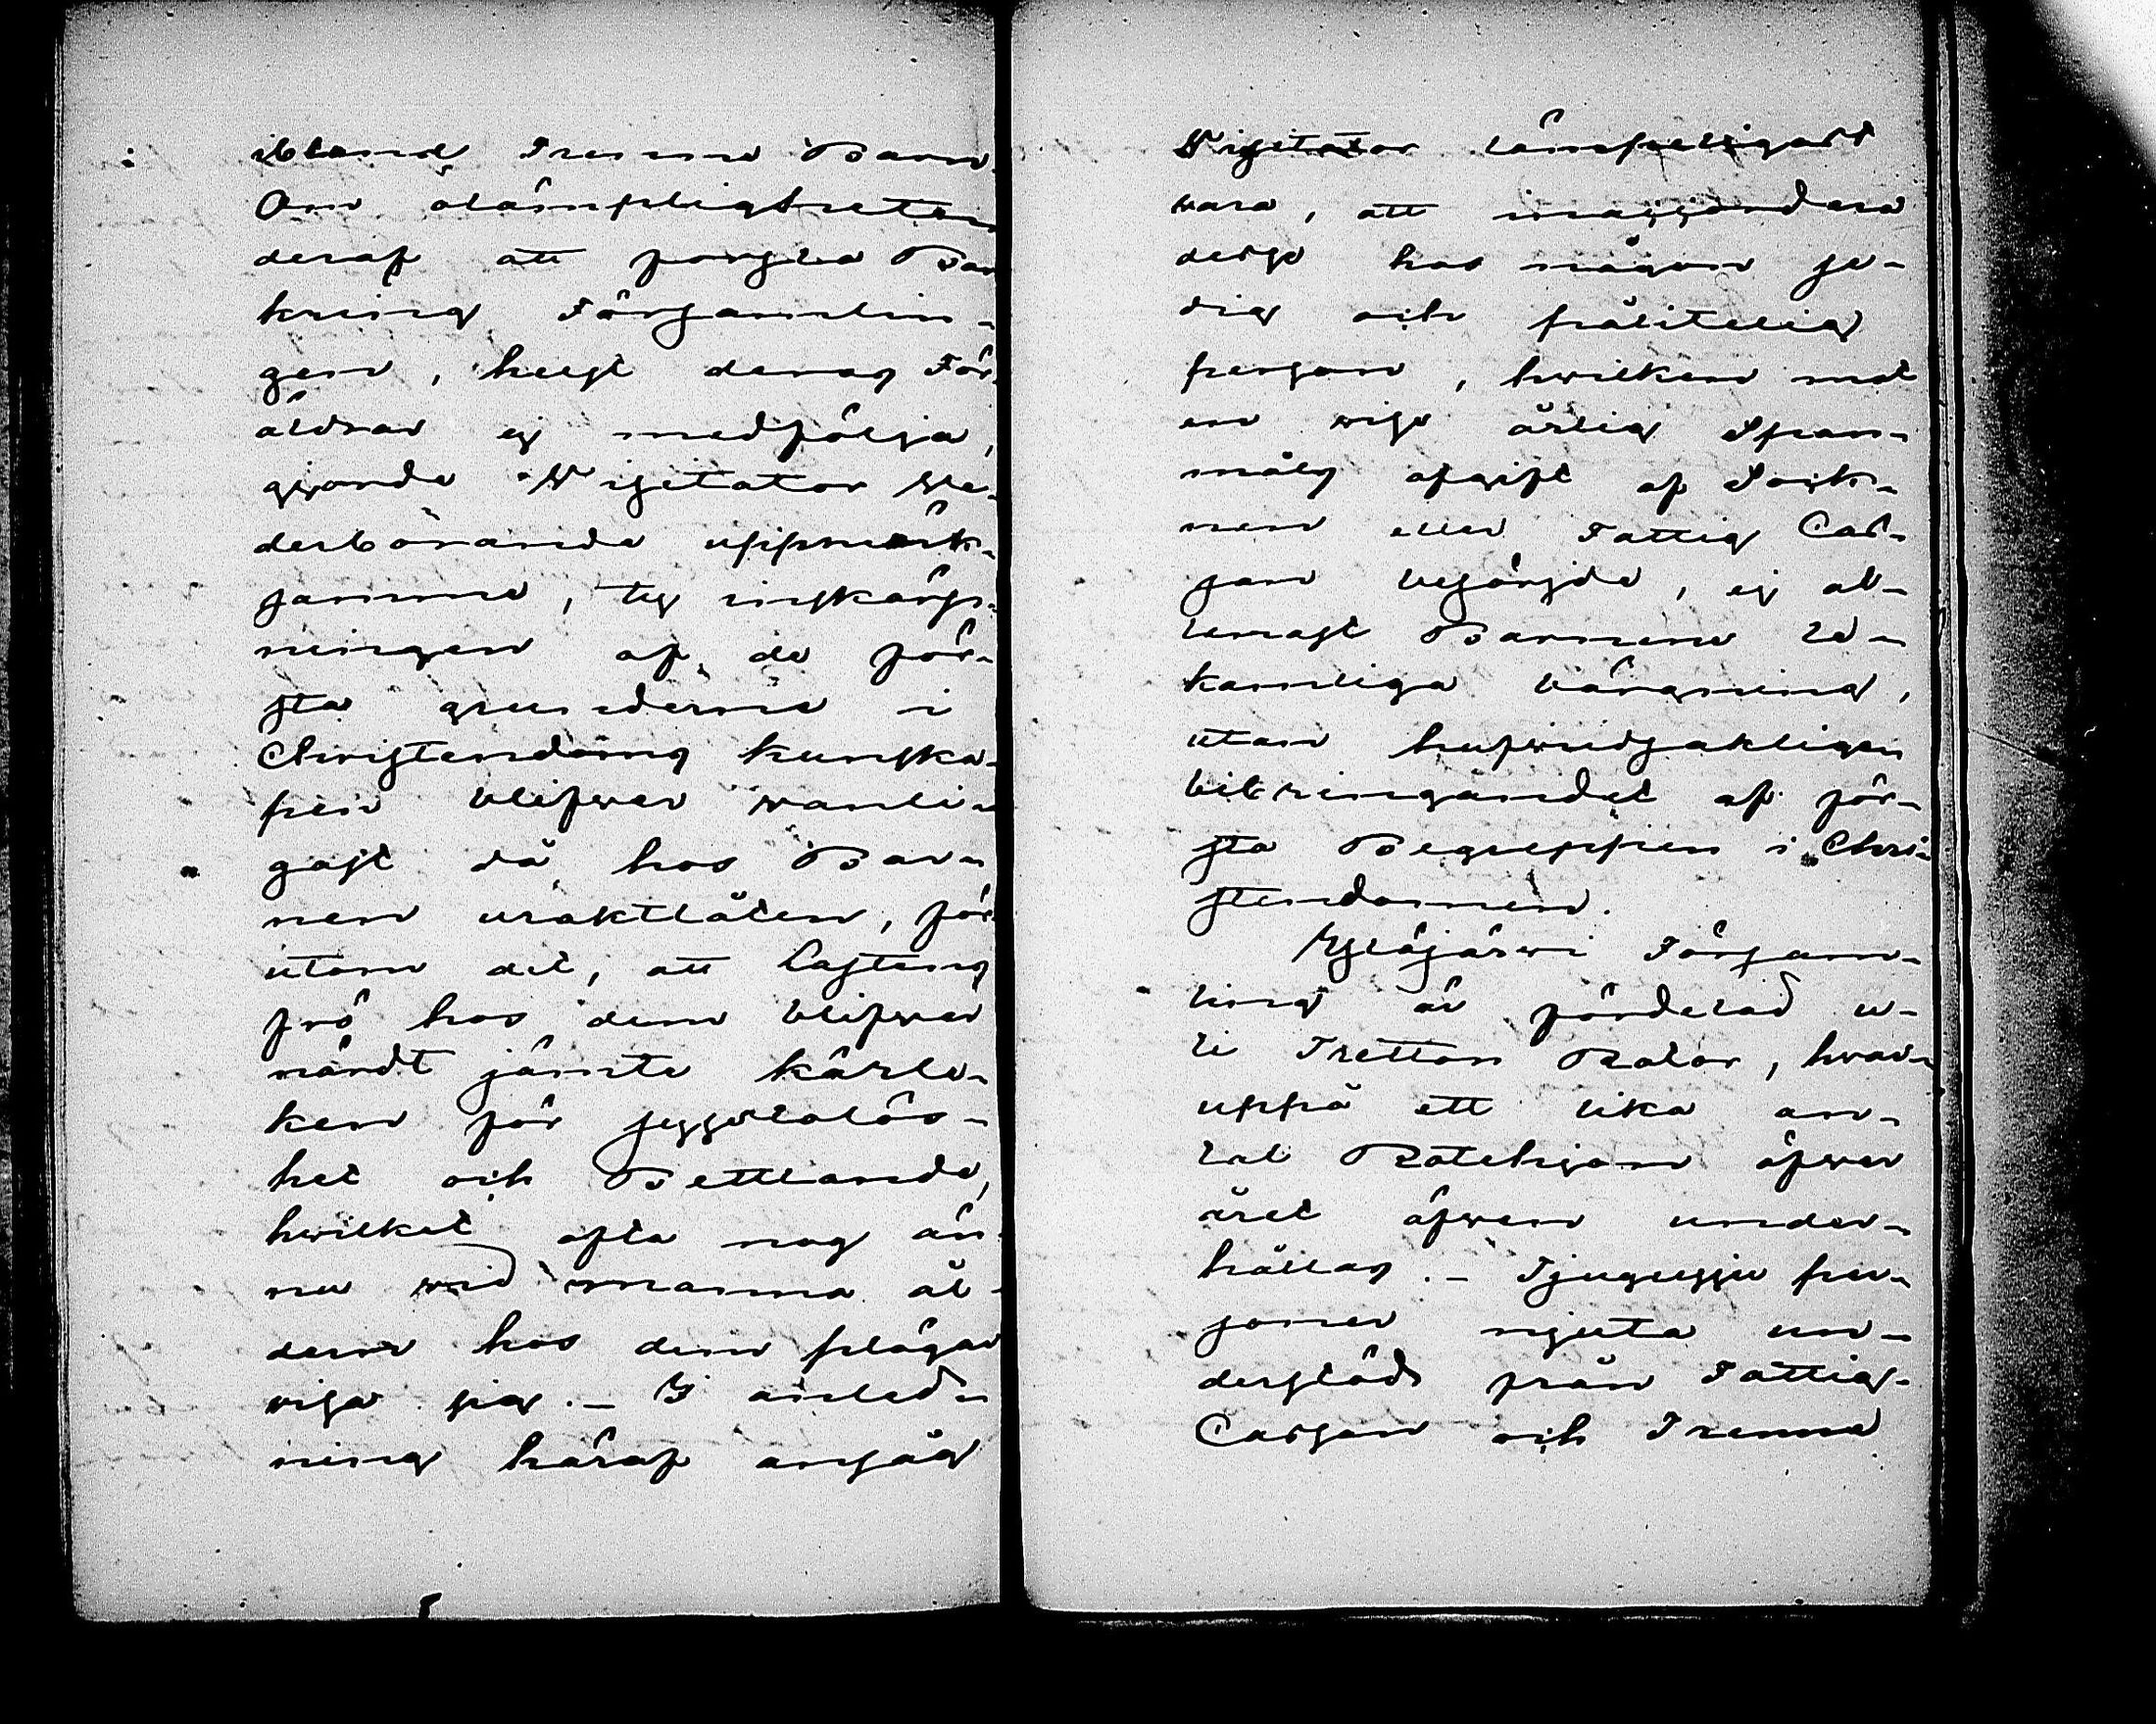 ibland Trenne Barn.
Om olämpligheten
deraf att forsla Barn
kring Församlin-
gen, helst deras För-
äldrar ej medfölja,
gjorde Visitator ve-
derbörande uppmärk-
samme, ty inskärp-
ningen af de för-
sta grunderne i
Christendoms kunska-
pen blifver vanli-
gast då hos Bar-
nen uraktlåten, för
utom det, att Lastens
frö hos dem blifver
närdt jämte kärle-
ken för sysslolös-
het och Bettlande,
hvilket ofta nog än-
nu vid manna ål-
dern hos dem plägar
visa sig. — I anled-
ning häraf ansåg
Visitator lämpeligast
vara, att inackordera
desse hos någon se-
dig och pålitelig
person, hvilken mot
en viss årlig Span-
måls afgift af Sock-
nen eller Fattig Cas-
san besörjde, ej al-
lenast Barnens le-
kamliga bärgning,
utan hufvudsakligen
bibringandet af för-
sta Begreppen i Chri-
stendomen.
Ylöjärvi Försam-
ling är fördelad u-
ti Tretton Rotar, hvar-
uppå ett lika an-
tal Rotehjon öfver
året äfven under-
hållas. — Tjugusju per-
soner njuta un-
derstöd från Fattig-
Cassan och Trenne